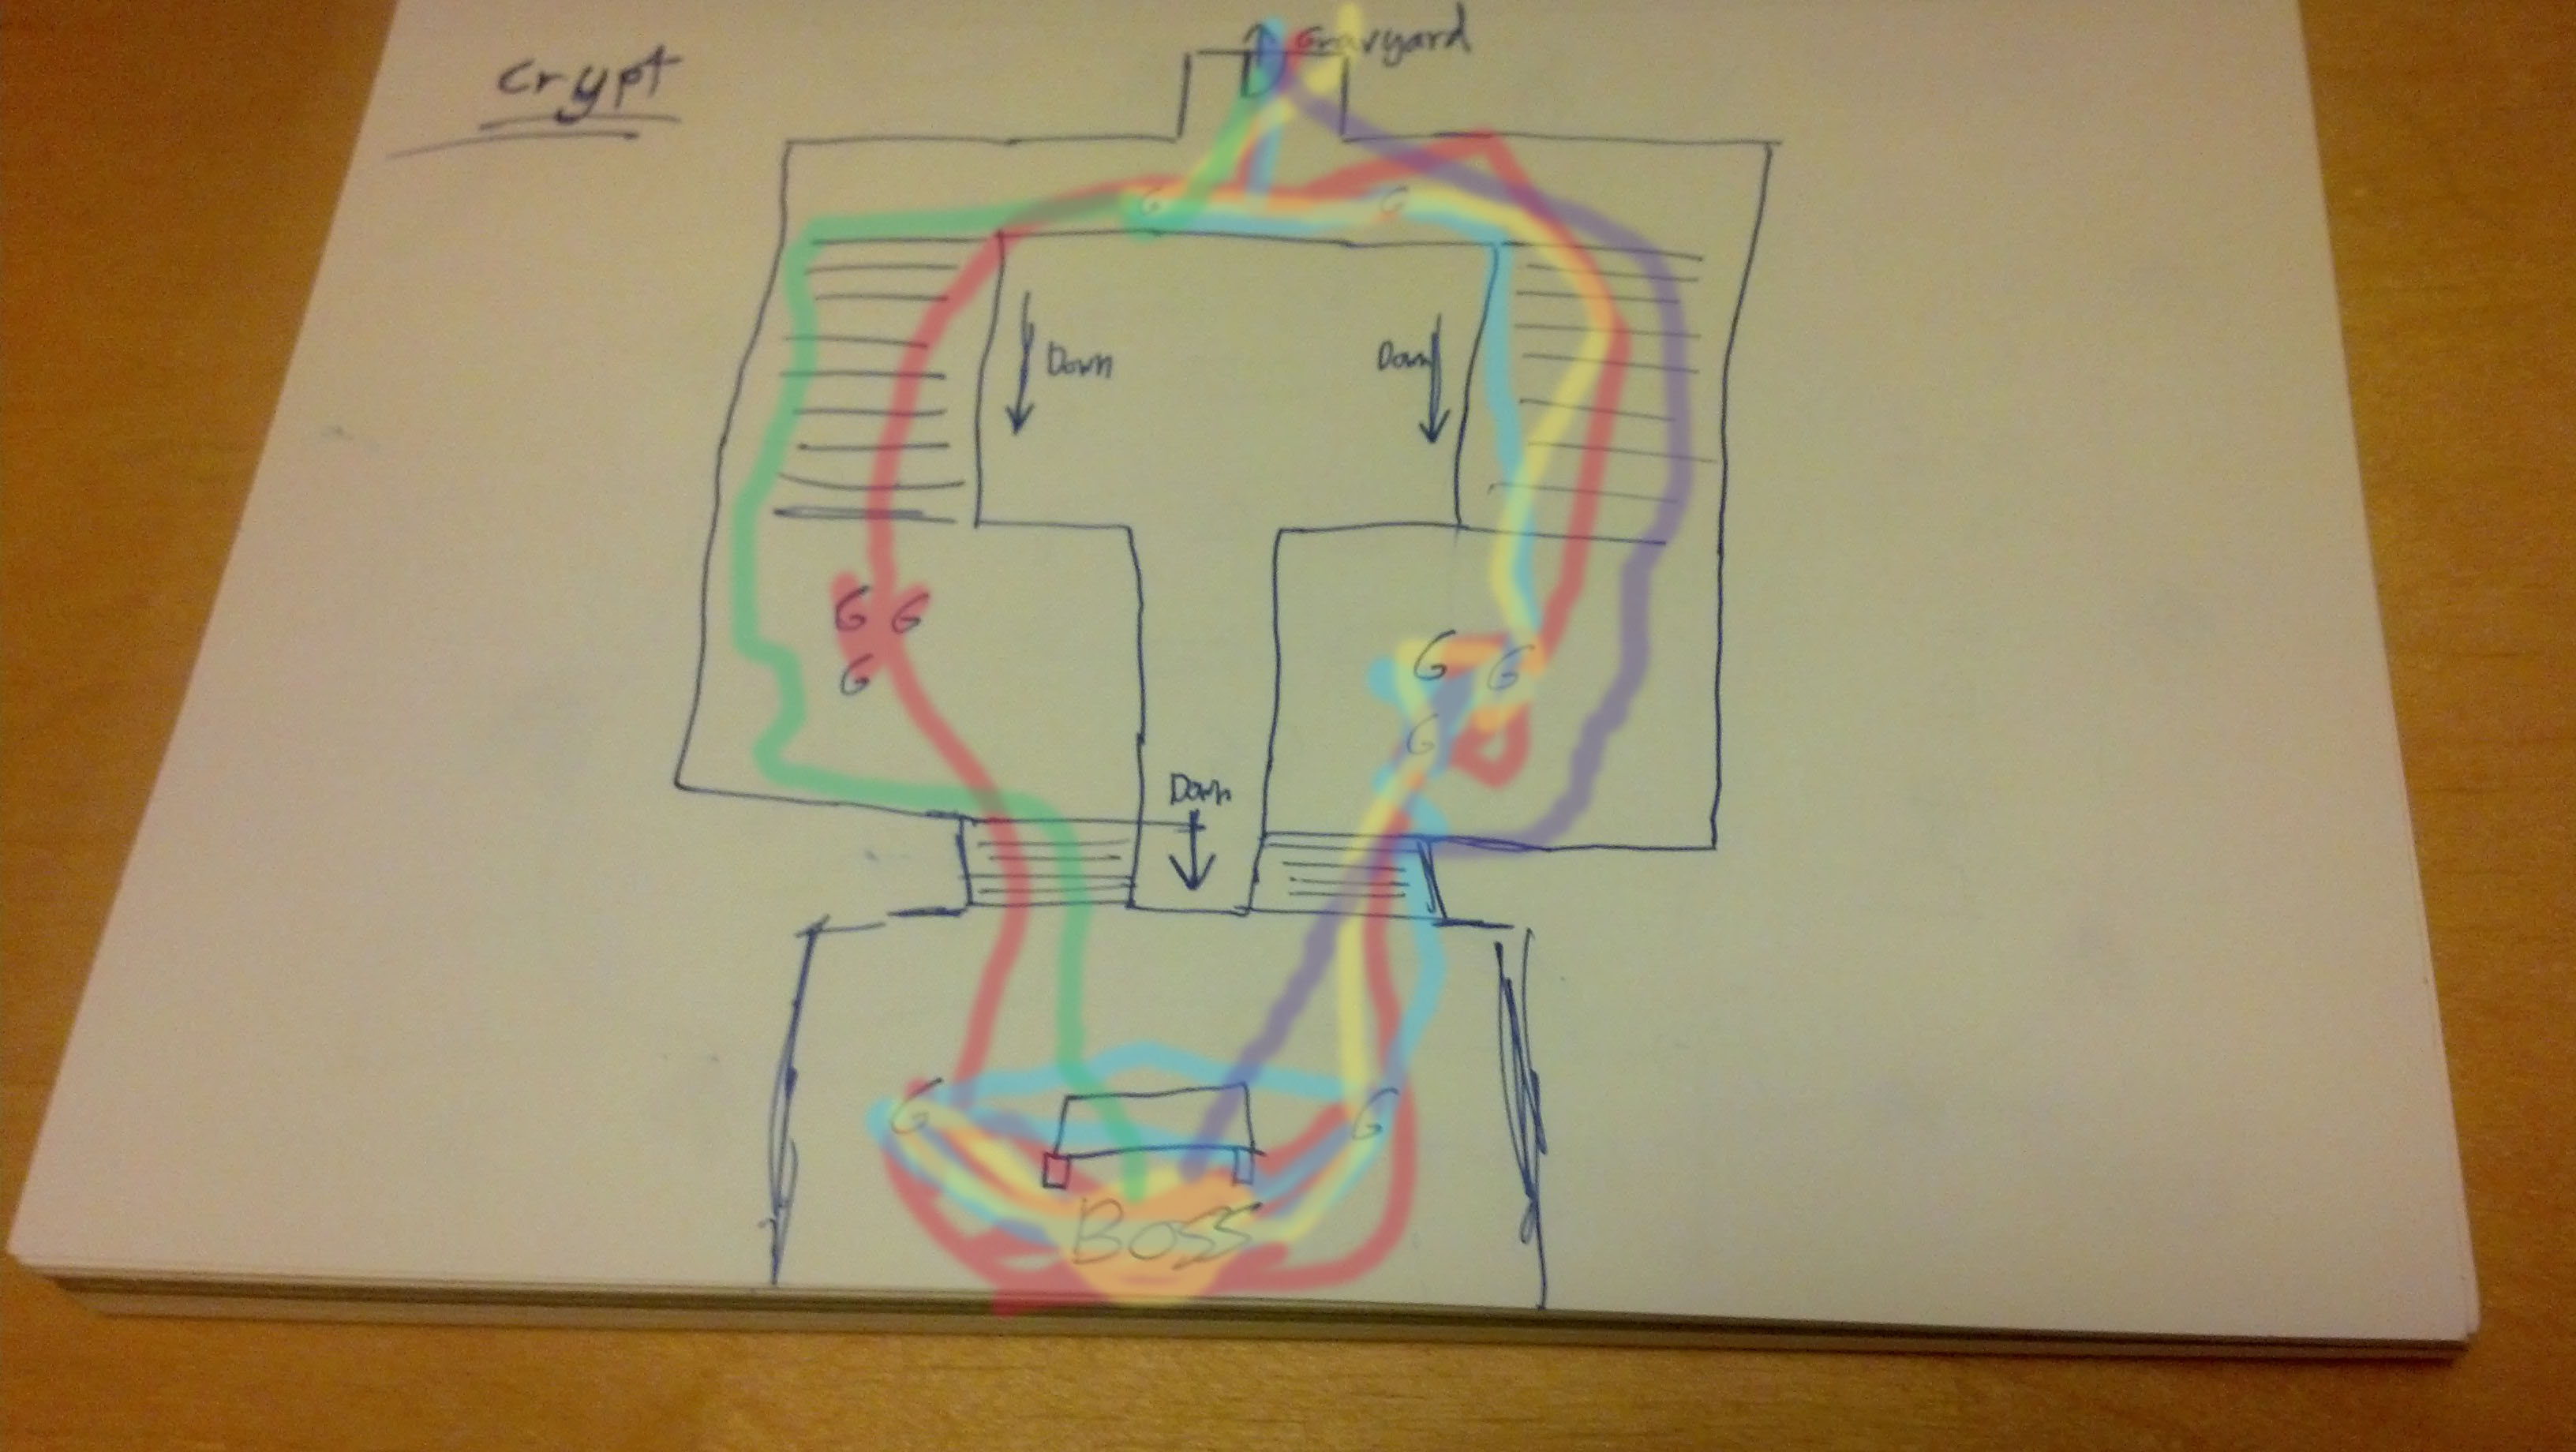 Crypt
Gravyard
G G
Down Down
G G G G
G G
Down
G G
Boss